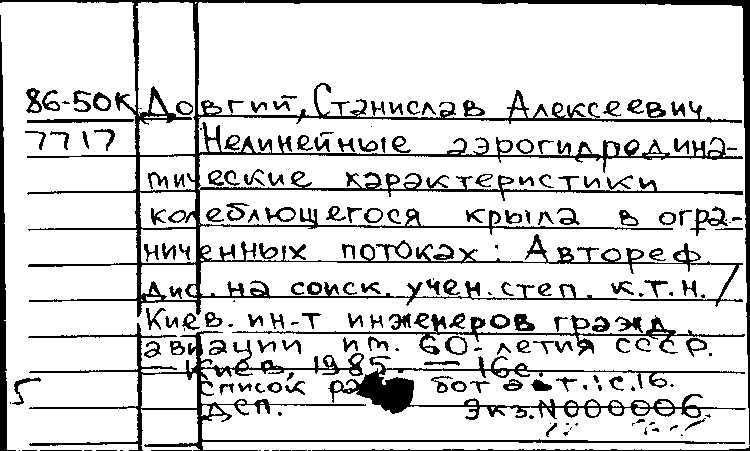 86-50К Довгий, Станислав Алексеевич.
7717 Нелинейные аэрогидродина-
мические характеристики
колеблющегося крыла в огра-
ниченных потоках: Автореф.
дис. на соиск. учен. степ. к.т.н. /
Киев. ин-т инженеров гражд.
авиации им. 60-летия СССР.
— Киев, 1985. — 16с.
Список работ авт.: с.16.
5 ДСП. Экз. N000006